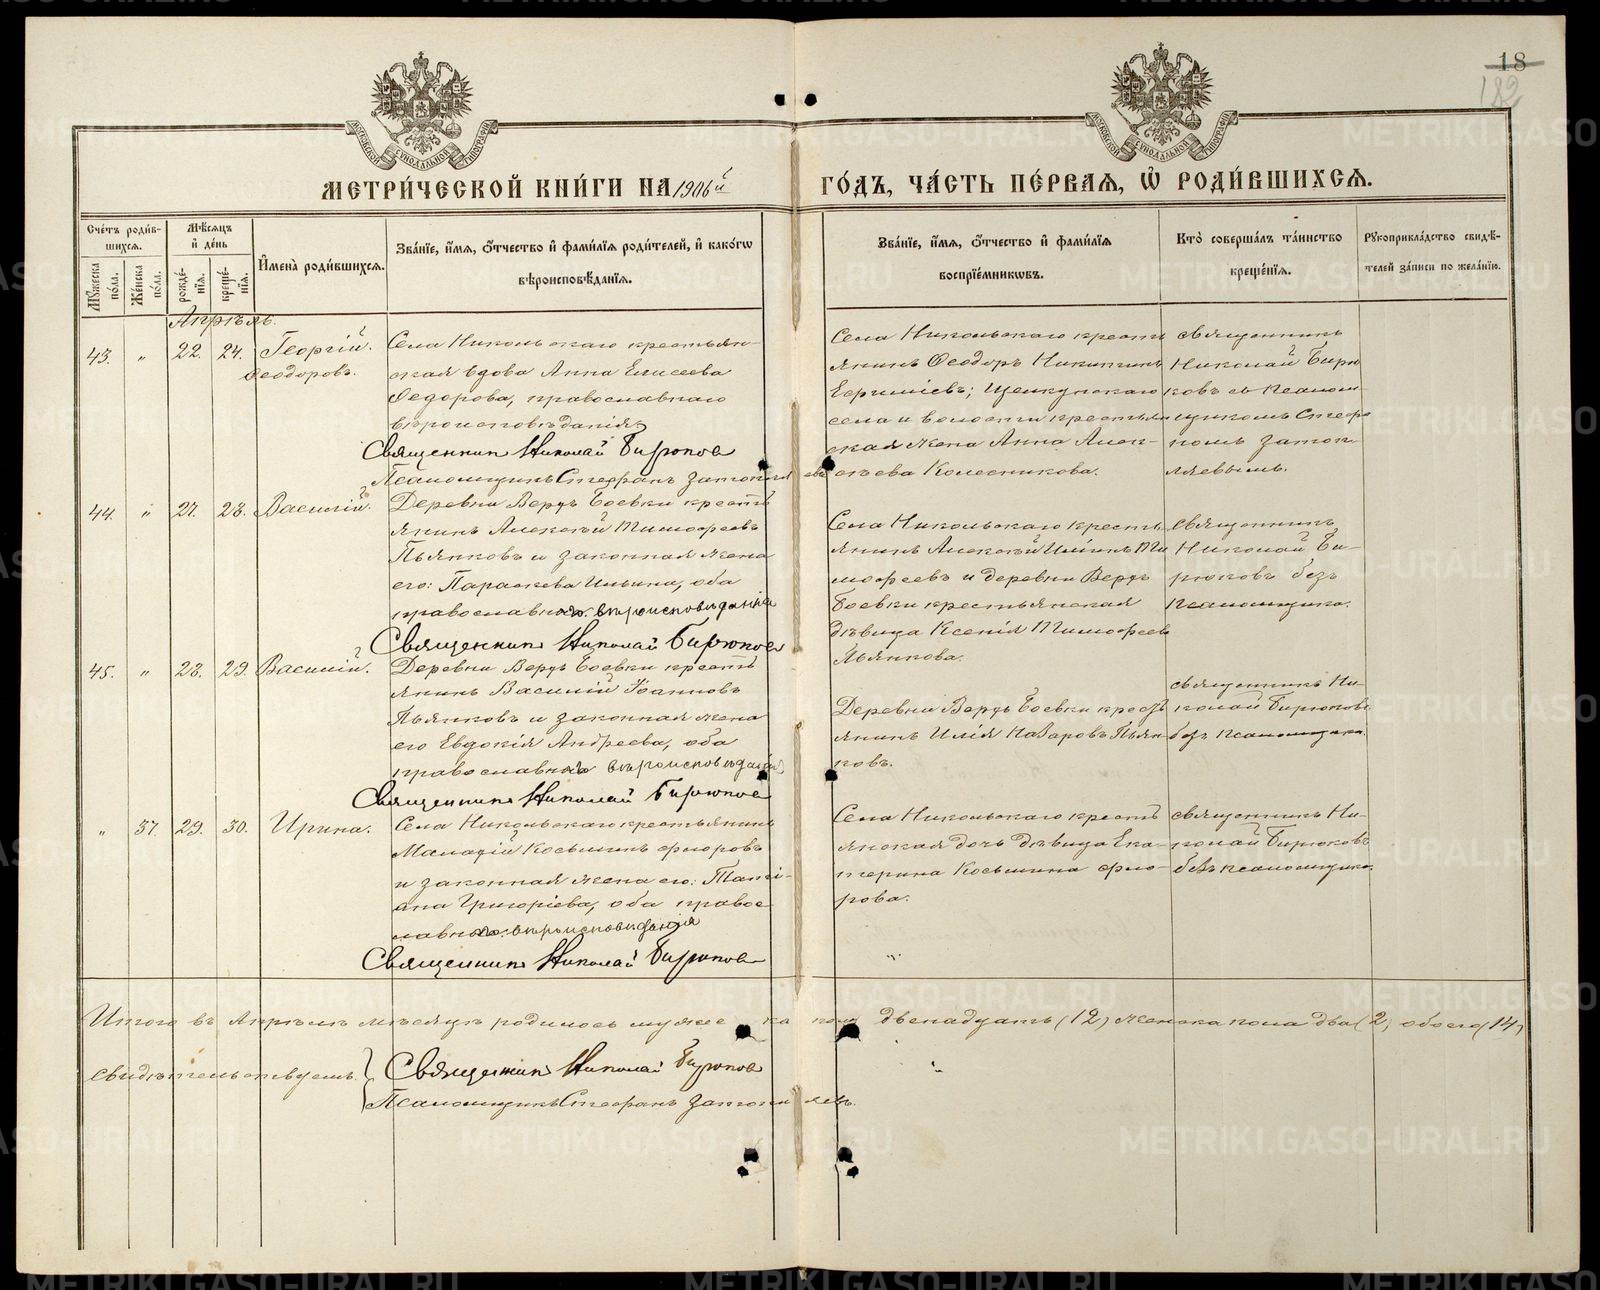 18
182
МОСКОВСКОЙ СѴНОДАЛЬНОЙ ТИПОГРАФІИ
МОСКОВСКОЙ СѴНОДАЛЬНОЙ ТИПОГРАФІИ
МЕТРИ́ЧЕСКОЙ КНИ́ГИ НА 1906й ГО́ДЪ, ЧА́СТЬ ПЕ́РВАЯ, Ѽ РОДИ́ВШИХСЯ.
Сче́тъ роди́вшихся.
Му́жеска по́ла.
Же́нска по́ла.
Мѣ́сяцъ и҆ де́нь
рожде́нїя.
креще́нїя.
И҆мена̀ роди́вшихся.
Зва́нїе, и҆́мя, о҆́тчество и҆ фами́лїя роди́телей, и҆ како́гѡ вѣроисповѣ́данїя.
Зва́нїе, и҆́мя, о҆́тчество и҆ фами́лїя воспрїе́мникѡвъ.
Кто̀ соверша́лъ та́инство креще́нїя.
Рꙋкоприкла́дство свидѣ́телей за́писи по жела́нїю.
Апрѣль.
43. " 22. 24. Георгій.
Ѳеодоровъ.
Села Никольскаго крестьян-
ская вдова Анна Елисеева
Федорова, православнаго
вѣроисповѣданія.
Священник Николай Бирюков
Псаломщикъ Стефанъ Затопляевъ
Села Никольскаго кресть
янинъ Ѳеодоръ Никитинъ
Ефимiевъ; Щелкунскаго
села и волости крестьян
ская жена Анна Алек-
сѣева Колесникова.
священникъ
Николай Бирю
ковъ съ псалом
щикомъ Стефа
номъ Затоп
ляевымъ.
44. " 27. 28. Василій.
Деревни Верхъ Боевки кресть
янинъ Алексѣй Тимофеевъ
Пьянковъ и законная жена
его: Параскева Ильина, оба
православнаго вѣроисповѣданія
Священник Николай Бирюков
Села Никольскаго кресть
янинъ Алексѣй Ильинъ Ти
мофеевъ и деревни Верхъ
Боевки крестьянская
дѣвица Ксенія Тимофеева
Пьянкова.
священникъ
Николай Би-
рюковъ безъ
псаломщика.
45. " 28. 29. Василій.
Деревни Верхъ Боевки кресть
янинъ Василій Іоанновъ
Пьянковъ и законная жена
его Евдокія Андреева, оба
православнаго вѣроисповѣданія
Священник Николай Бирюков
Деревни Верхъ Боевки крест
янинъ Илія Назаровъ Пьян-
ковъ.
священникъ Ни-
колай Бирюковъ
безъ псаломщика.
" 57. 29. 30. Ирина.
Села Никольскаго крестьянинъ
Малахій Косьминъ Флоровъ
и законная жена его: Тати-
ана Григоріева, оба право
славнаго вѣроисповѣданія
Священник Николай Бирюков
Села Никольскаго кресть
янская дочь дѣвица Ека-
терина Косьмина Фло-
рова.
священникъ Ни-
колай Бирюковъ
безъ псаломщика.
Итого въ Апрѣлѣ мѣсяцѣ родилось мужеска пола двенадцать (12) женска пола два (2) обоего (14)
свидѣтельствуемъ. Священник Николай Бирюков
Псаломщикъ Стефанъ Затопляевъ.
METRIKI.GASO-URAL.RU